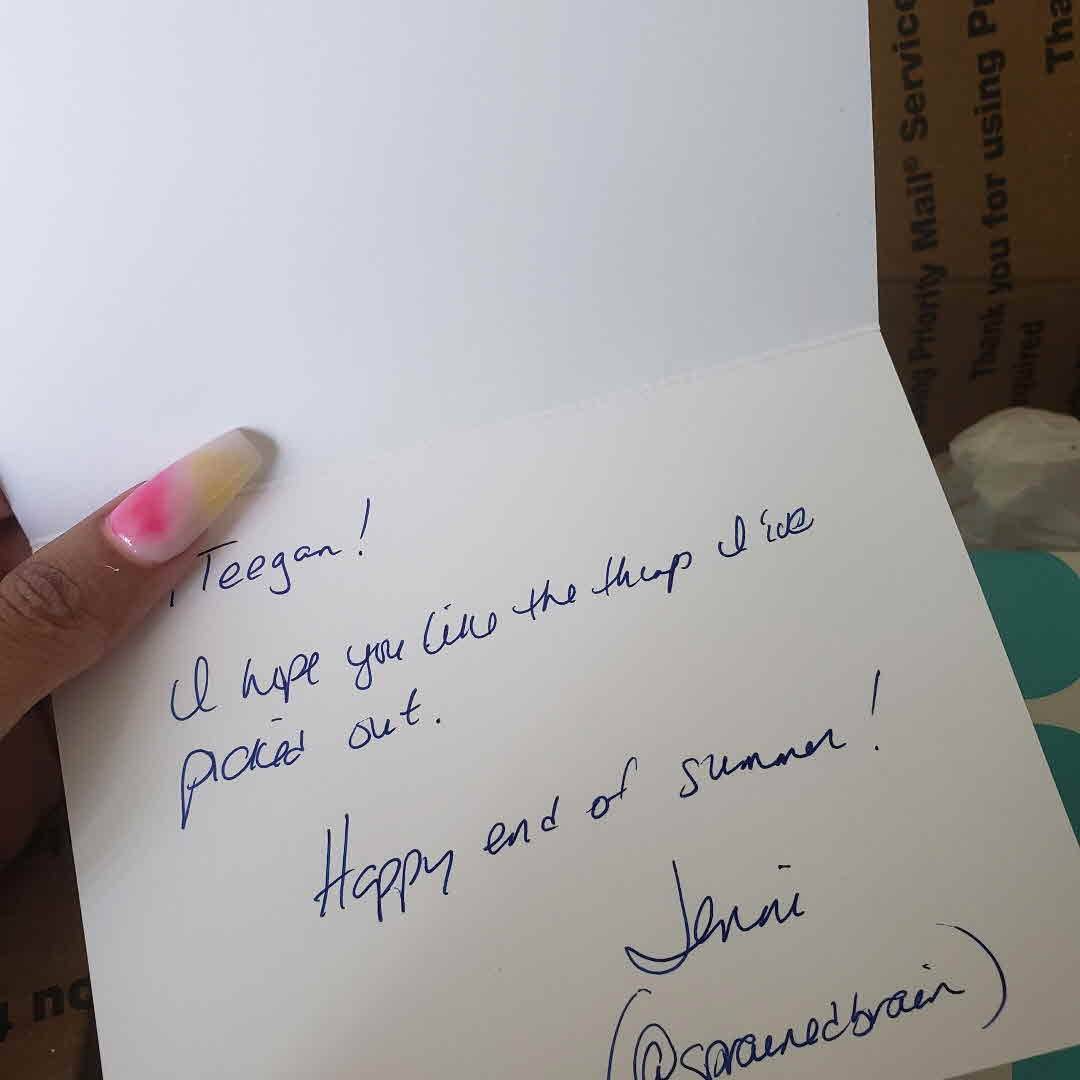 Teegan!
I hope you like the things I've
picked out.
Happy end of summer!
Jenni
(@sprainedbrain)
Priority Mail® Service
Thank you for using